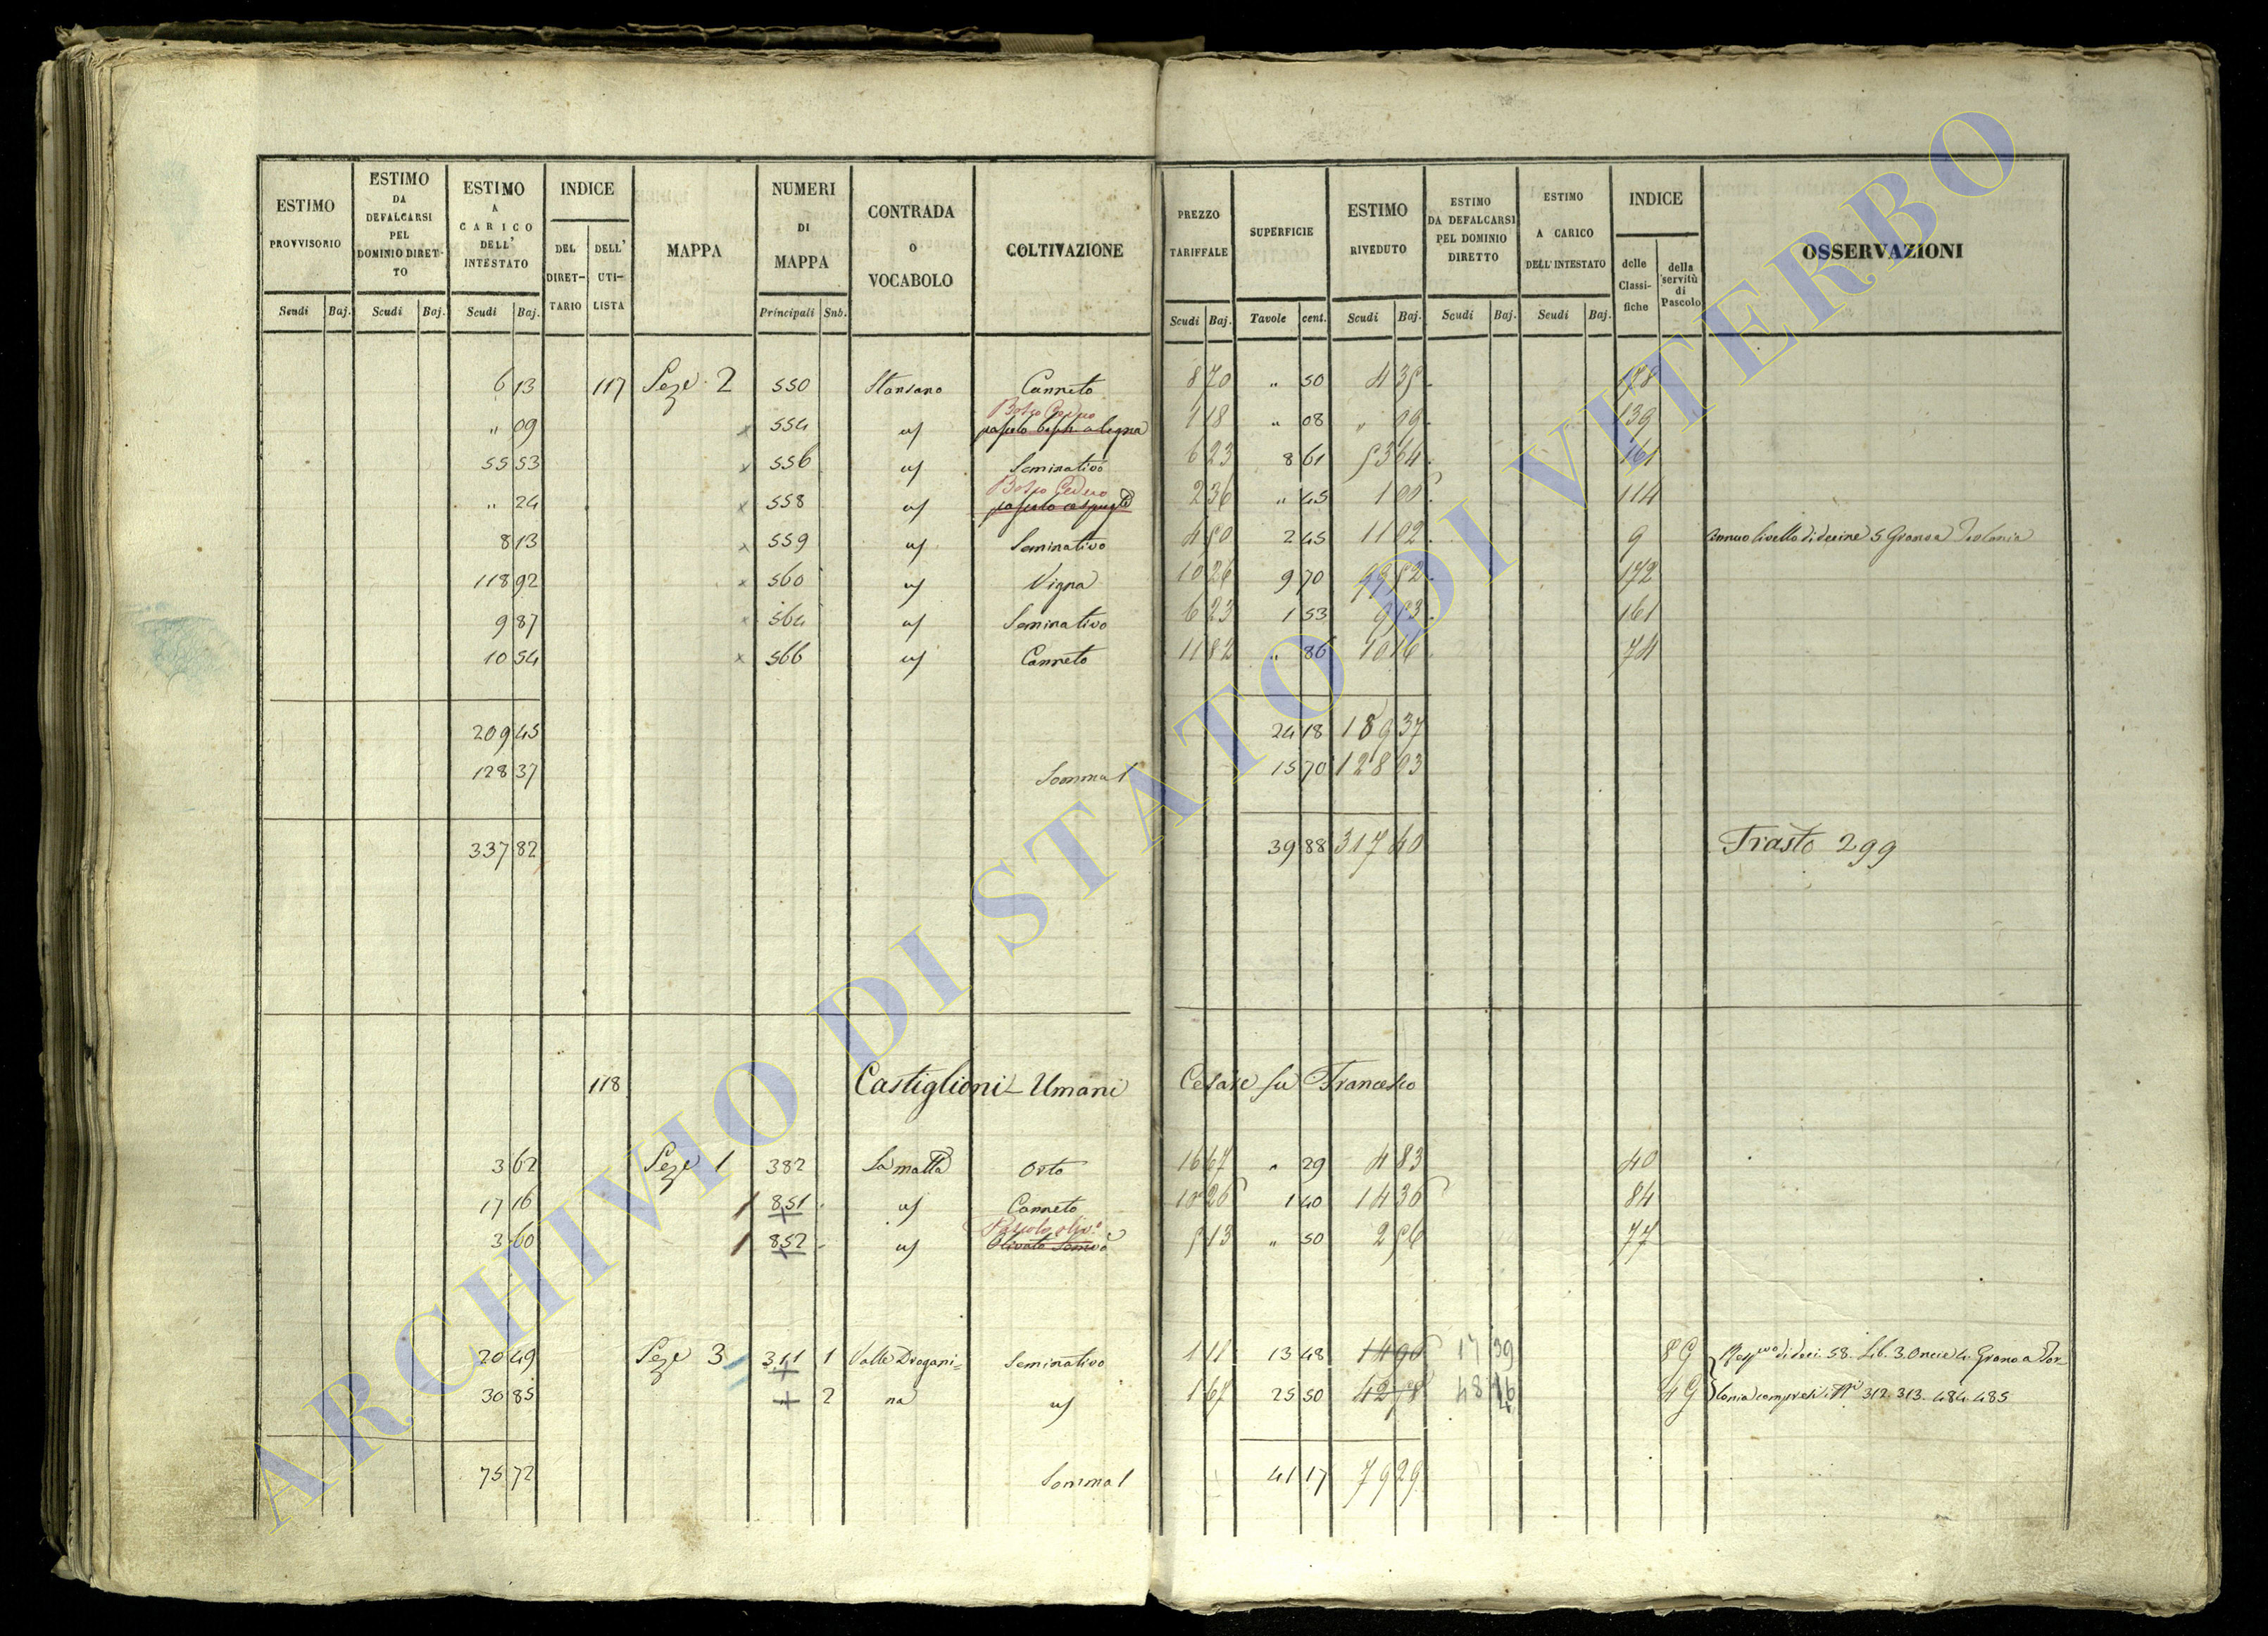 ESTIMO PROVVISORIO Scudi Baj.
ESTIMO DA DEFALCARSI PEL DOMINIO DIRETTO Scudi Baj.
ESTIMO A CARICO DELL' INTESTATO Scudi Baj.
INDICE DEL DIRETTARIO DELL' UTILISTA
MAPPA
NUMERI DI MAPPA Principali Sub.
CONTRADA O VOCABOLO
COLTIVAZIONE
PREZZO TARIFFALE Scudi Baj.
SUPERFICIE Tavole cent.
ESTIMO RIVEDUTO Scudi Baj.
ESTIMO DA DEFALCARSI PEL DOMINIO DIRETTO Scudi Baj.
ESTIMO A CARICO DELL' INTESTATO Scudi Baj.
INDICE delle Classifiche della servitù di Pascolo
OSSERVAZIONI
6 13 117 Seze 2 550 Stonsano Canneto 8 70 " 50 4 35 178
" 09 x 554 Bosco Ceduo 1 18 " 08 " 09 139
55 53 x 556 Seminativo 6 23 8 61 53 64 161
" 24 x 558 Bosco Ceduo pascolo cespugl 2 36 " 45 1 06 114
8 13 x 559 Seminativo 4 50 2 45 11 02 9 annuo livello di decine 5 Grano a Tolonia
118 92 x 560 Vigna 10 26 9 70 99 52 172
9 87 x 564 Seminativo 6 23 1 53 9 53 161
10 54 x 566 Canneto 11 82 " 86 10 16 74
209 45 24 18 189 37
128 37 Somma 1 15 70 128 03
337 82 39 88 317 40 Trasto 299
118 Castiglioni - Umani Cesare fu Francesco
3 62 Seze 1 382 La matta Orto 16 67 " 29 4 83 40
17 16 1 851 Canneto 10 26 1 40 14 36 84
3 60 1 852 Pascolo oliv.o Olivato 5 13 " 50 2 56 77
20 49 Seze 3 311 1 Valle Dragani= Seminativo 1 11 13 48 14 96 17 39 8 G
30 85 " 2 na 1 67 25 50 42 58 48 4 G 312. 313. 484. 485
75 72 Somma 1 41 17 79 29
ARCHIVIO DI STATO DI VITERBO